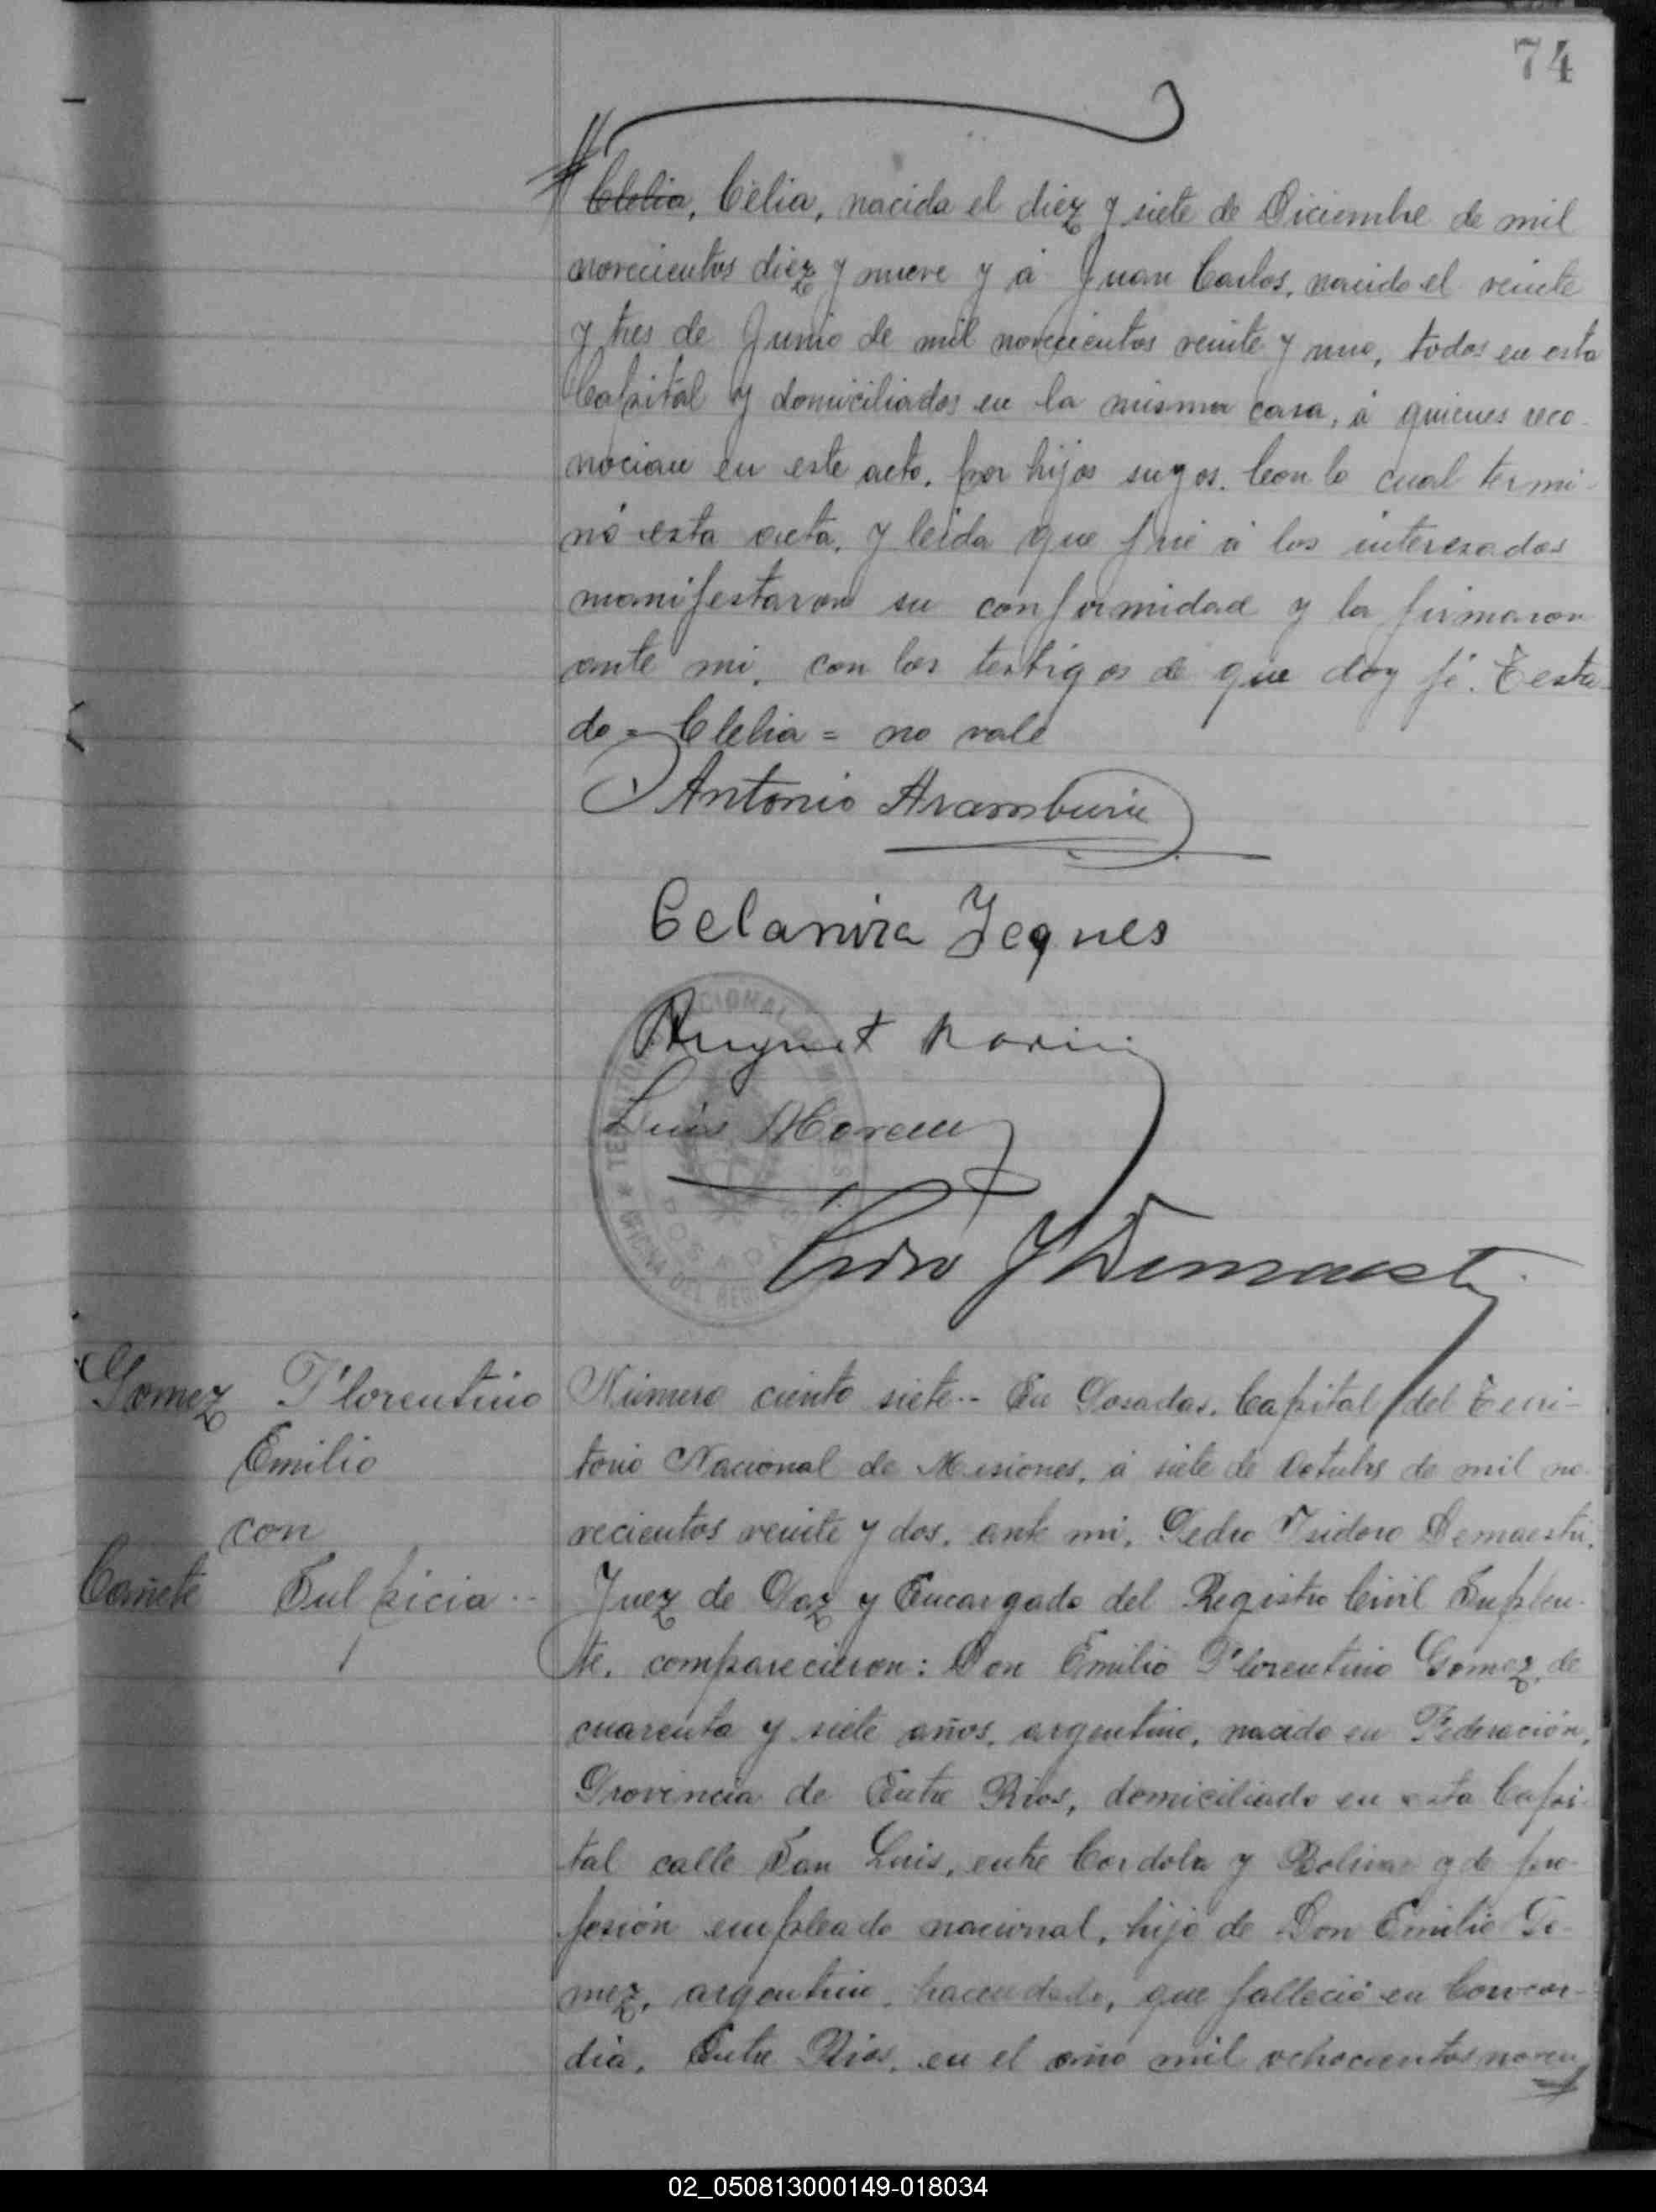 74
Clelia, Celia, nacida el diez y siete de Diciembre de mil
novecientos diez y nueve y á Juan Carlos, nacido el veinte
y tres de Junio de mil novecientos veinte y uno, todos en esta
Capital y domiciliados en la misma casa, á quienes reco-
nocian en este acto, por hijos suyos. Con lo cual termi-
nó esta acta, y leida que fué á los interesados
manifestaron su conformidad y la firmaron
ante mi, con los testigos de que doy fé. Testa-
do = Clelia = no vale
Antonio Aramburu
Celanira Yeques
Luis Moreau
Pedro Y Demaestri
TERRITORIO NACIONAL DE MISIONES
OFICINA DEL REGISTRO
POSADAS
Gomez Florentino
Emilio
con
Cañete Sulpicia --
Número ciento siete -- En Posadas, Capital del Terri-
torio Nacional de Misiones, á siete de Octubre de mil no-
vecientos veinte y dos, ante mi, Pedro Isidoro Demaestri,
Juez de Paz y Encargado del Registro Civil Suplen-
te, comparecieron: Don Emilio Florentino Gomez, de
cuarenta y siete años, argentino, nacido en Federación,
Provincia de Entre Rios, domiciliado en esta Capi-
tal calle San Luis, entre Cordoba y Bolivar y de pro-
fesión empleado nacional, hijo de Don Emilio Go-
mez, argentino, hacendado, que falleció en Concor-
dia, Entre Rios, en el año mil ochocientos noven
02_050813000149-018034